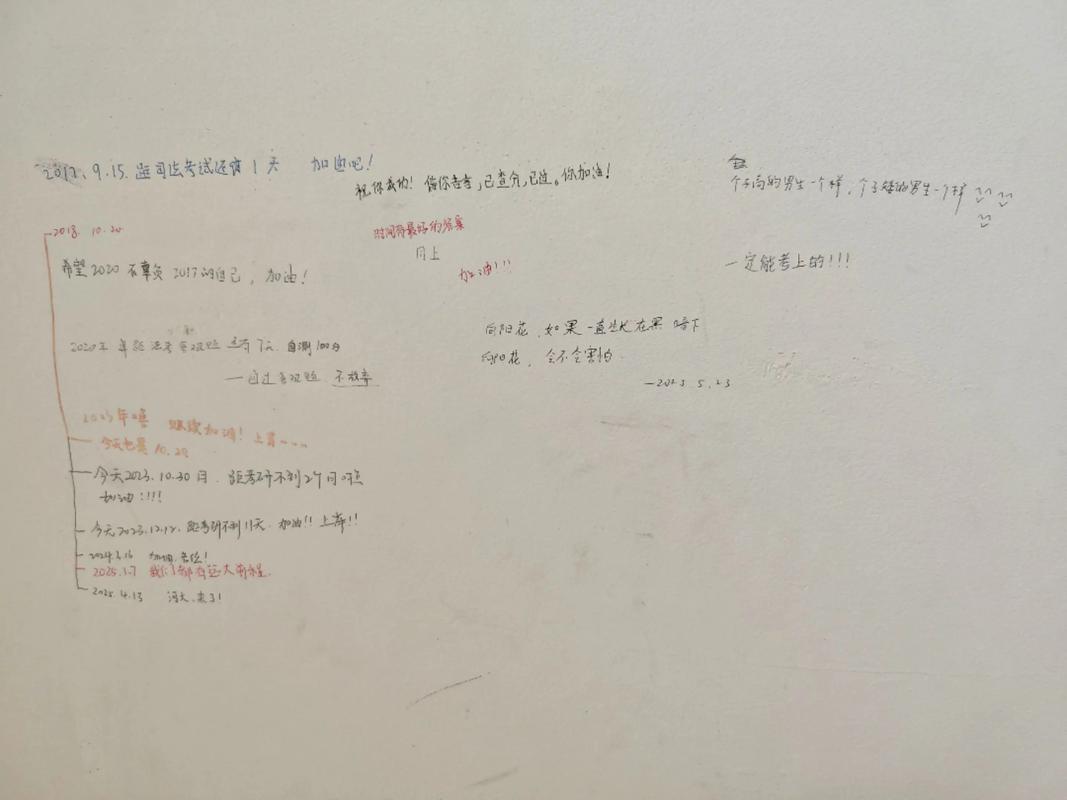 2017.9.15.距司法考试还有1天 加油吧!
祝你成功! 借你吉言,已查分,已过。你加油!
个子高的男生一个样,个子矮的男生一个样
2018. 10.20
时间有最好的答案
同上
加油!!!
一定能考上的!!!
希望2020 不辜负 2017的自己,加油!
向阳花,如果一直生长在黑暗下
向阳花,会不会害怕
—2023.5.23
2020年 距法考客观题还有7天.自测100分
—通过客观题 不放弃
2023年 继续加油!上岸....
今天也是10.20
今天2023.10.30日.距考研不到2个月
加油!!!!
今天2023.12.12.距考研不到11天.加油!!上岸!!
2024.3.16 加油,各位!
2025.1.7 我们都有远大前程.
2025.4.13 来了!